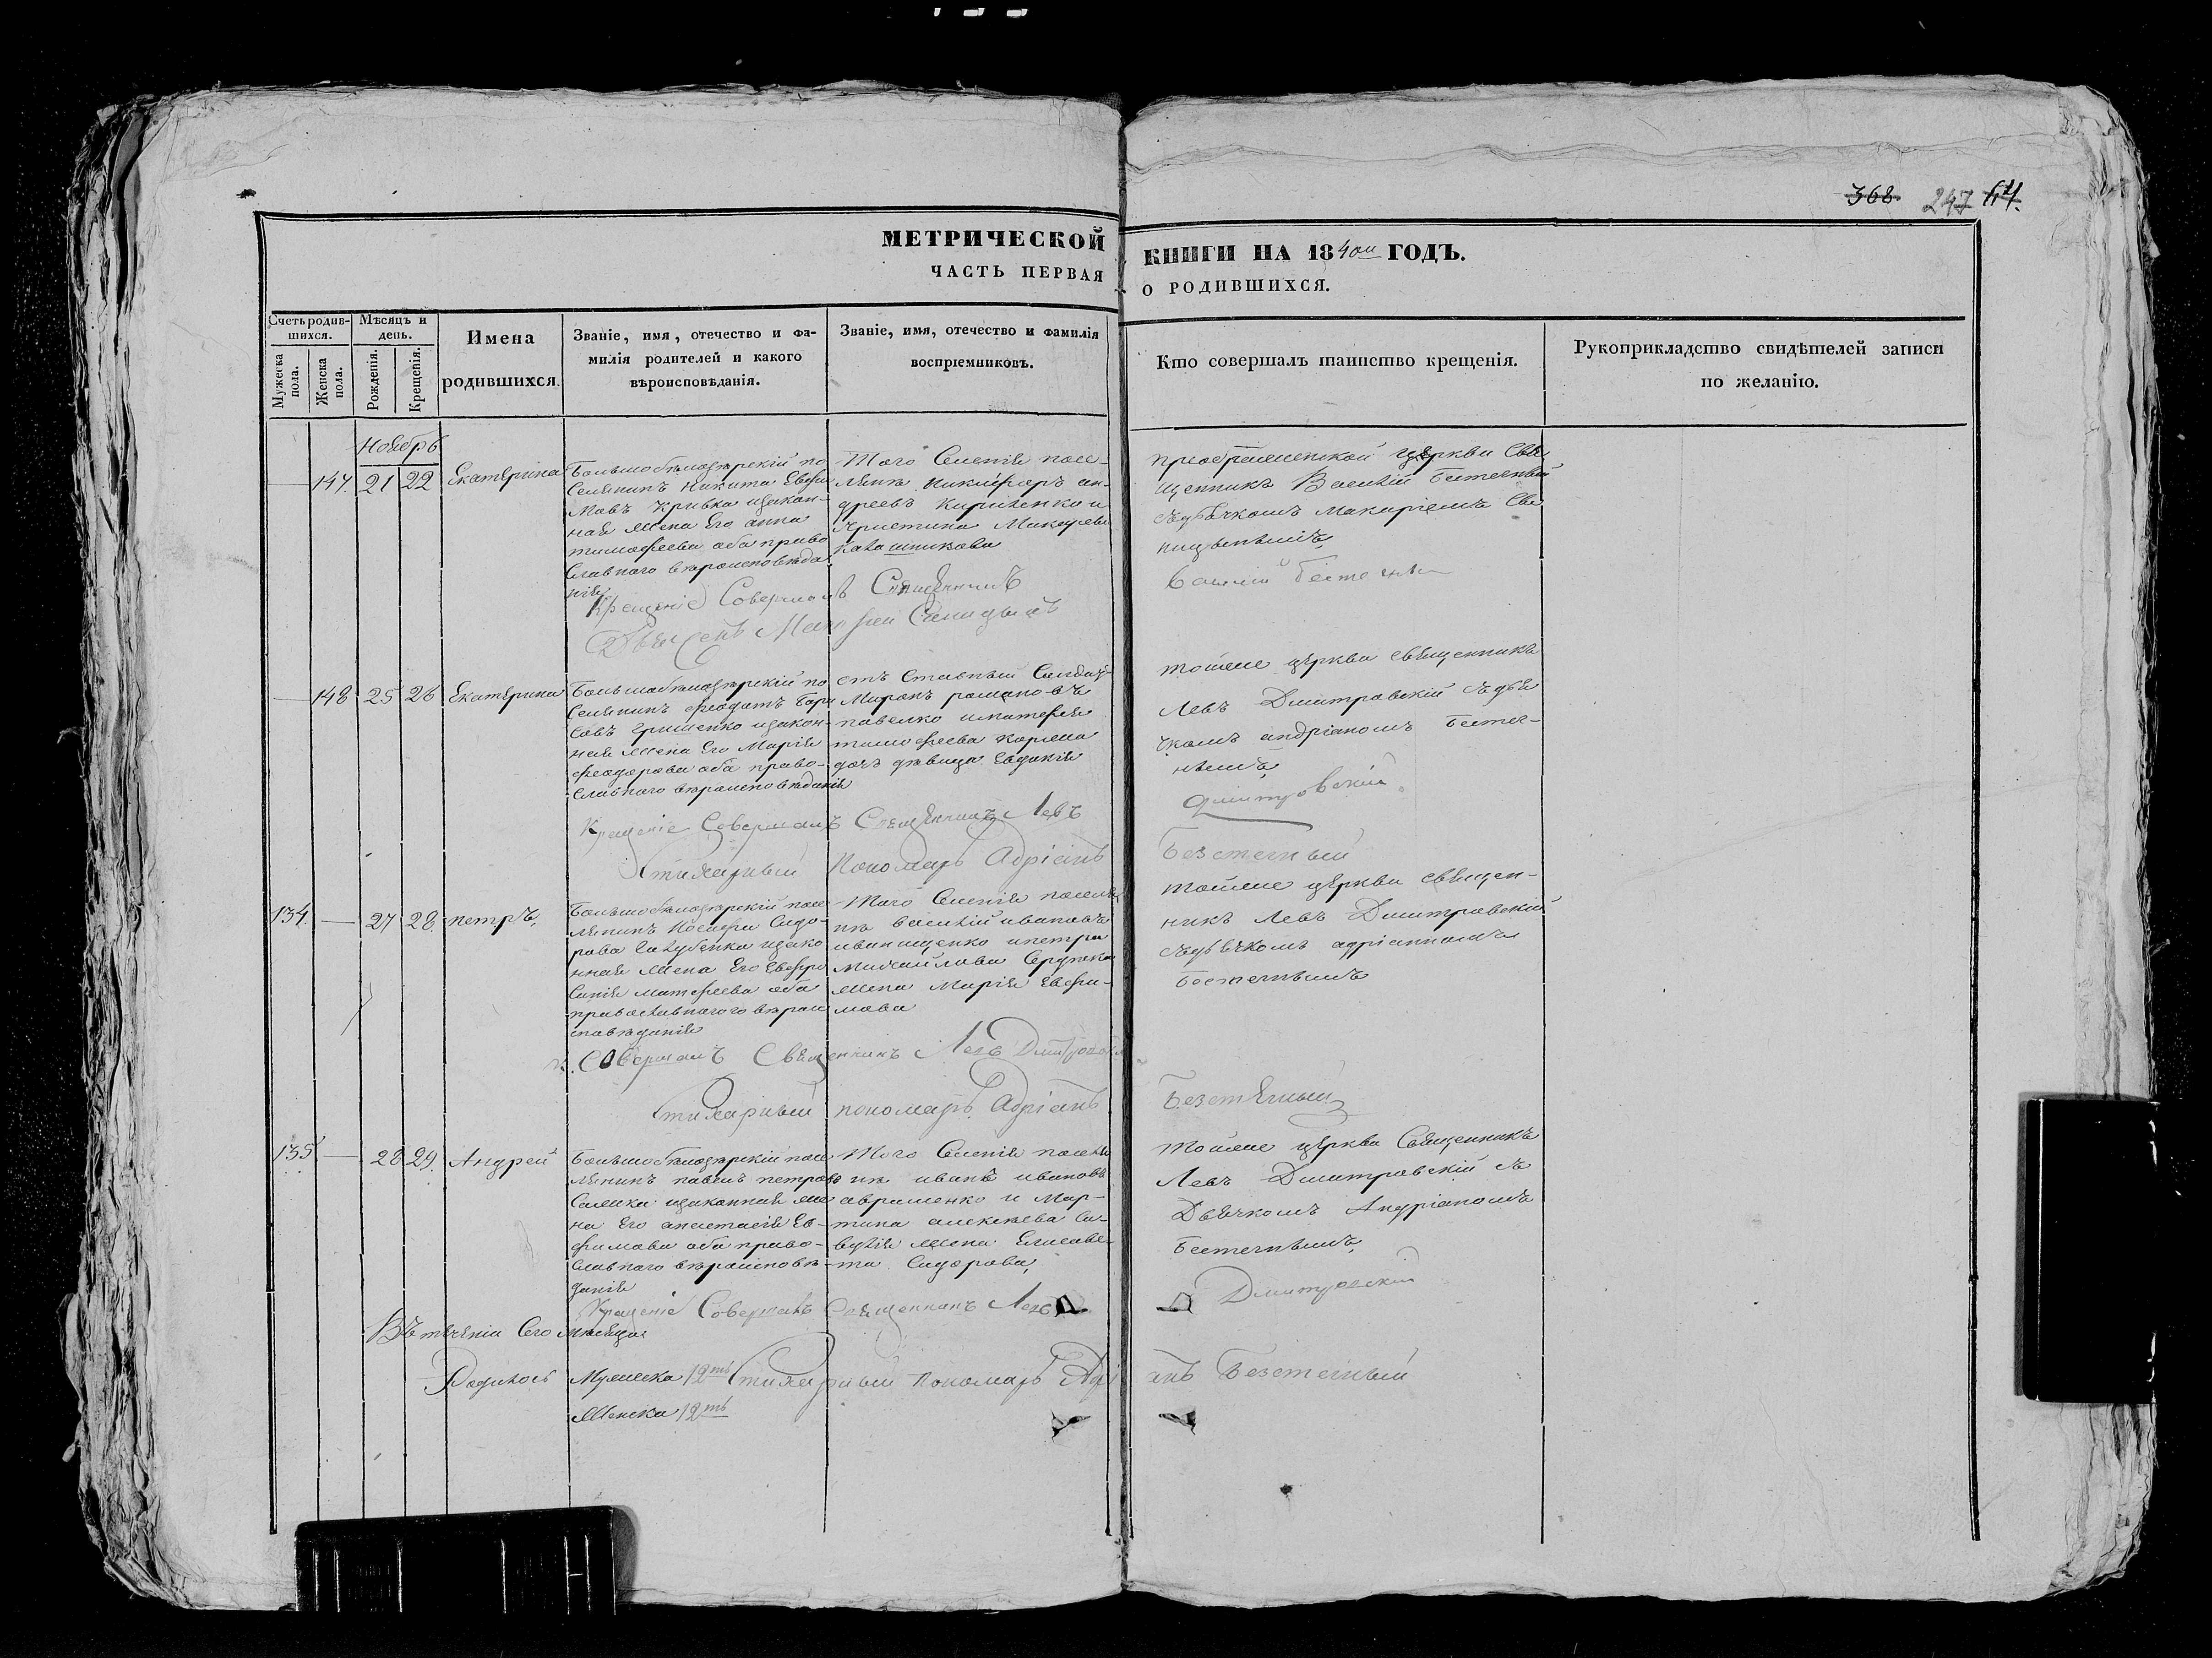 368. 247 64.
МЕТРИЧЕСКОЙ
ЧАСТЬ ПЕРВАЯ
КНИГИ НА 1840й ГОДЪ.
О РОДИВШИХСЯ.
Счетъ родив-
шихся.
Мужеска
пола.
Женска
пола.
Мѣсяцъ и
день.
Рожденія.
Крещенія.
Имена
родившихся.
Званіе, имя, отечество и фа-
милія родителей и какого
вѣроисповѣданія.
Званіе, имя, отечество и фамилія
воспріемниковъ.
Кто совершалъ таинство крещенія.
Рукоприкладство свидѣтелей записи
по желанію.
Ноябрь
147. 21 22 Екатерина
Большобѣлозерскій по
селянинъ Никита Ефи
мовъ Кривка изакон-
ная жена Его анна
тимофеева оба право
славнаго вѣроисповѣда
нія
Того Селенія посе-
лянъ Никифоръ ан-
дреевъ Кириченко и
христина Макарева
преображенской церкви Свя
щенникъ Василій Бестечный
съдьячкомъ Макаріемъ
Крещеніе Совершалъ Священникъ
Василій
148 25 26 Екатерина
Большобѣлозерскій по
селянинъ феодотъ Бори
совъ Гришенко изакон-
ная жена Его Марія
феодорова оба право-
славнаго вѣроисповѣданія
отъ Ставный Солдатъ
Миронъ романовъ
павелко
тимофеева
дочь дѣвица Евдокія
тойже церкви священникъ
Левъ Димитровскій съдья
чкомъ андріаномъ Бестеч-
нымъ
Димитровскій
Крещеніе Совершалъ Священникъ Левъ
Стихарный Пономарь Адріанъ Безстечный
134. 27 28. петръ
Большобѣлозерскій посе
лянинъ Сидо-
рова изако
нная жена Его Евфро
синія матфеева оба
православнаго вѣрои
сповѣданія
Того Селенія поселя
нъ василій ивановъ
иванищенко ипетра
михайлова Сердюка
жена Марія Ефи-
мова
тойже церкви священ-
никъ Левъ Димитровскій
съдьячкомъ адріанномъ
Бестечнымъ
К. Совершалъ Священникъ Левъ Димитровскій
Стихарный пономарь Адріанъ Безстечный
135 28 29. Андрей
Большобѣлозерскій посе
лянинъ павелъ петровъ
изаконная же
на Его анастасія Ев-
фимова оба право-
славнаго вѣроисповѣ-
данія
Того Селенія поселя
нъ иванъ ивановъ
авраменко и Мар-
тина алексѣева
жена Елисаве-
та Сидорова
тойже церкви Священникъ
Левъ Димитровскій съ
Дьячкомъ Андріаномъ
Бестечнымъ
Крещеніе Совершалъ Священникъ Левъ Димитровскій
Втеченіи Сего мѣсяца
Родилось
Мужеска 12ть
Женска 12ть
Стихарный Пономарь Адріанъ Безстечный